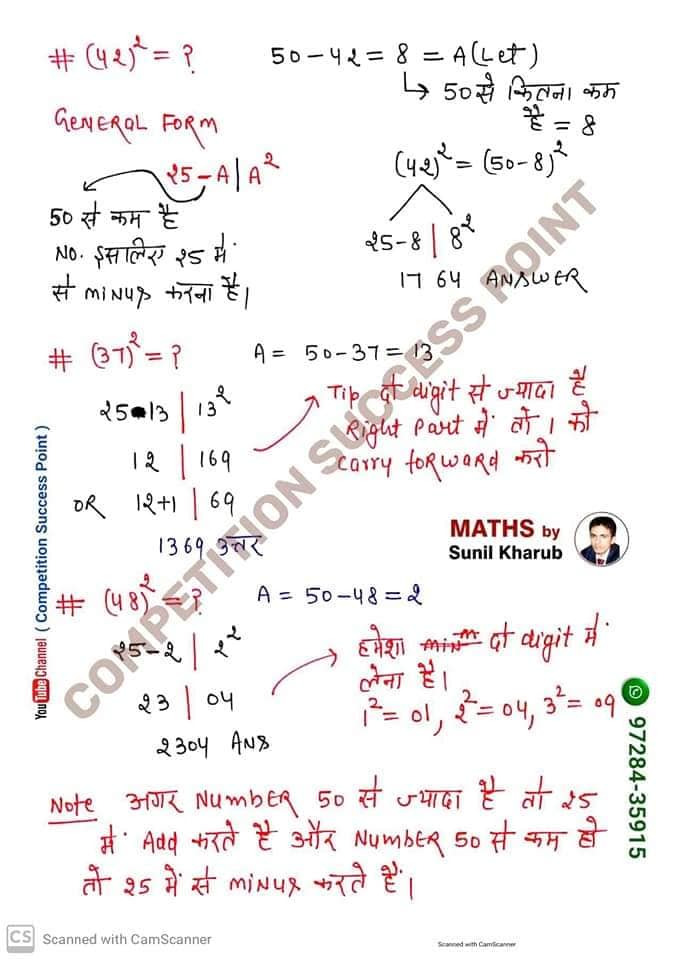 # (42)² = ?
50-42 = 8 = A (Let)
↳ 50 से कितना कम
है = 8
GENERAL FORM
25-A | A²
50 से कम है
NO. इसलिए 25 में
से MINUS करना है।
(42)² = (50-8)²
25-8 | 8²
17 64 ANSWER
# (37)² = ?
A = 50-37 = 13
25-13 | 13²
12 | 169
OR 12+1 | 69
1369 उत्तर
Tip दो digit से ज्यादा है
Right Part में तो 1 को
carry forward करो
MATHS by
Sunil Kharub
# (48)² = ?
A = 50-48 = 2
25-2 | 2²
23 | 04
2304 ANS
हमेशा दो digit में
लेना है।
1² = 01, 2² = 04, 3² = 09
Note अगर NUMBER 50 से ज्यादा है तो 25
में Add करते है और NUMBER 50 से कम हो
तो 25 में से MINUS करते हैं।
COMPETITION SUCCESS POINT
YouTube Channel ( Competition Success Point )
97284-35915
CS Scanned with CamScanner
Scanned with CamScanner